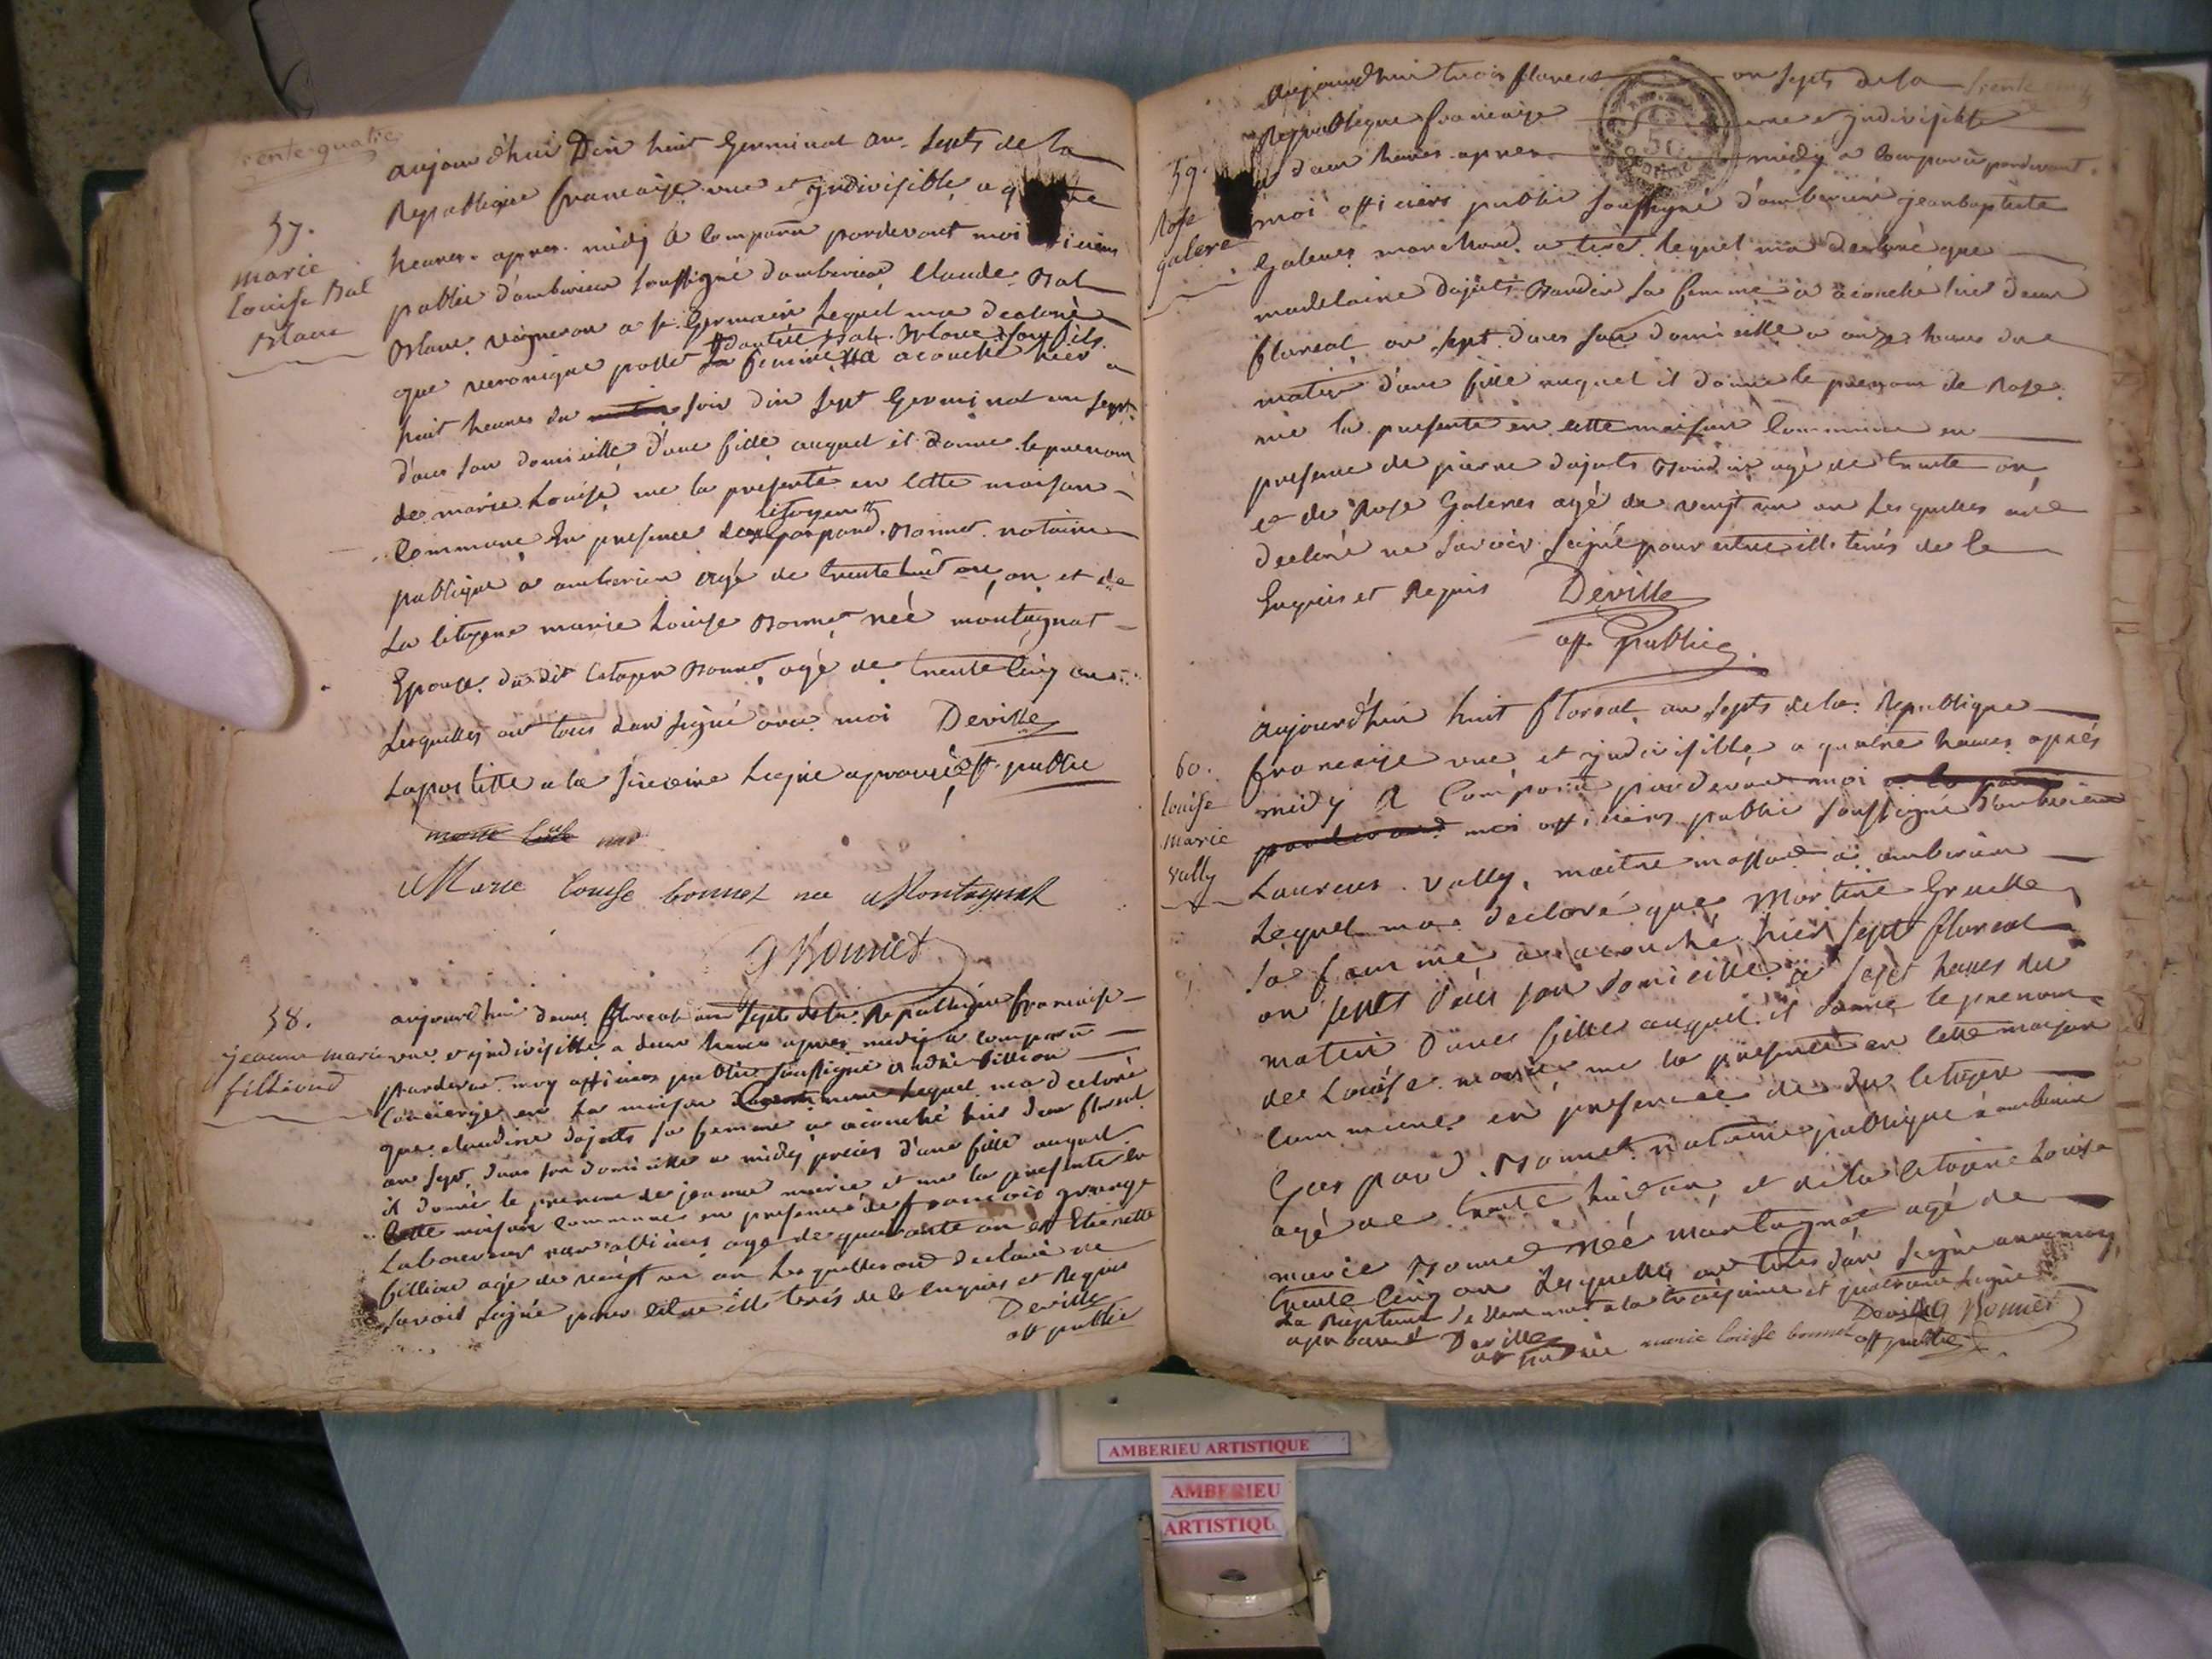 trente-quatre
57.
marie
Louise Bal
Blanc
aujourd'hui Dix huit Germinal an Septs de la
Republique francaise une et indivisible, a
heures apres midy a comparu pardevant moi
public d'amberieu soussigné d'amberieu, Claude Bal
Blanc vigneron a st Germain Lequel ma declaré
Bal Blanc son fils
que veronique la femme a acouché hier a
huit heures du soir dix sept Germinal an sept
dans son domicille, d'une fille auquel il donne le prenom
de marie Louise, me la presenté en cette maison
citoyen
Commune En presence de gaspard Bonnet notaire
publique a amberieu agé de trente huit an et de
La citoyene marie Louise Bonnet neé montagnat
Epouse du dit Citoyen Bonnet, agé de trente cinq ans
Lesquelles ont tous deux signé avec moi Deville
off public
marie
Marie louise bonnet nee Montagnat
G Bonnet
58.
jeanne marie
fillioud
aujourd'hui deux floreal an septs de la Republique francaise
une et indivisible a deux heures apres midy a comparu
pardevant moy officiers public soussigné andré fillion
Concierge en la maison Commune Lequel ma declaré
que claudine dajots sa femme a acouché hier deux floreal
an sept, dans son domicille a midy precis d'une fille auquel
il donne le prenom de jeanne marie et me la presente en
Cette maison Commune en presence de francois grange
Laboureur agé de quarante an et Etienette
fillion agé de vingt un an Lesquelles ont declaré ne
savoir signé pour estre illeterés de le enquies et Requis
Deville
off public
trente
59.
Rose
galere
Aujourd'hui trois floreal an septs de la
Republique francaise une et indivisible
a deux heures apres midy a comparu pardevant
moi officiers public soussigné d'amberieu jeanbaptiste
Galeres marchand a tiré lequel ma declaré que
madelaine dajots Baudin sa femme a acouché hier deux
floreal an sept dans son domicille a onze heures du
matin d'une fille auquel il donne le prenom de Rose
me la presente en cette maison Commune en
presence de pierre dajots Baudin agé de trente an
et de Rose Galeres agé de vingt un an Lesquelles ont
declaré ne savoir signé pour estre illeterés de le
Enquies et Requis Deville
off public
60.
Louise
marie
vally
aujourd'hui huit floreal an septs de la Republique
francaise une et indivisible a quatre heures aprés
midy a Comparu pardevant moi
moi officiers public soussigné d'amberieu
Laurens vally, maitre masson a amberieu
Lequel ma declaré que Martine Gruelle
sa femme a acouché hier sept floreal
an septs dans son domicille a sept heures du
matin d'une fille auquel il donne le prenom
de Louise marie me la presenté en cette maison
Commune en presence de du citoyen
Gaspard Bonnet notaire publique a amberieu
agé de trente huit an, et de la citoyene Louise
marie Bonnet neé montagnat agé de
trente cinq an Lesquelles ont tous deux signé avec moy
La Rapture a la troisieme et quatrieme Ligne
aprouvé Deville Deville G Bonnet
off public marie louise bonnet off public
AMBERIEU ARTISTIQUE
AMBERIEU
ARTISTIQU